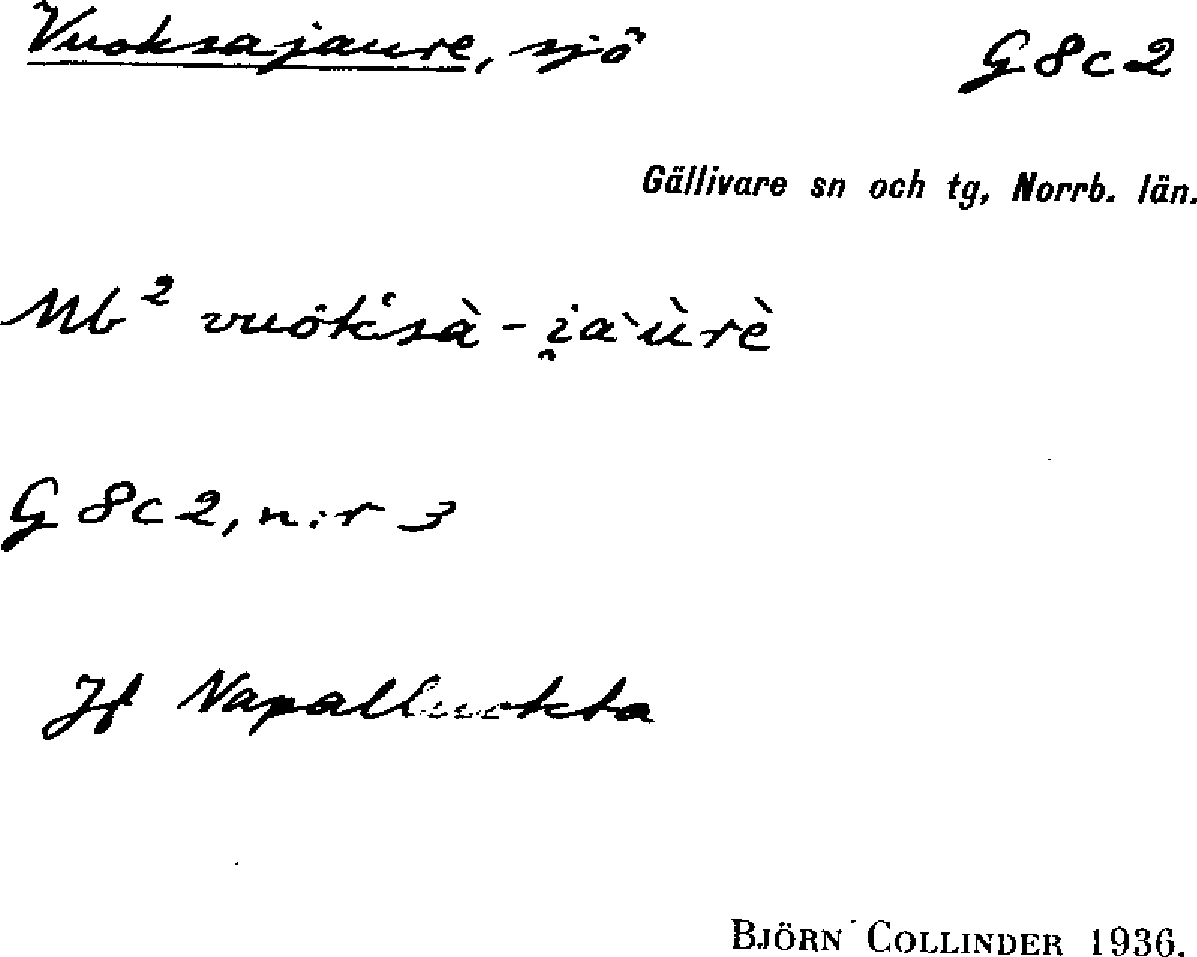 Vuoksajaure, sjö G8c2
Gällivare sn och tg, Norrb. län.
Nb² vuök̒sà - i̯a`ùrè
G8c2, n:r 3
Jf Napalluokta
BJÖRN COLLINDER 1936.